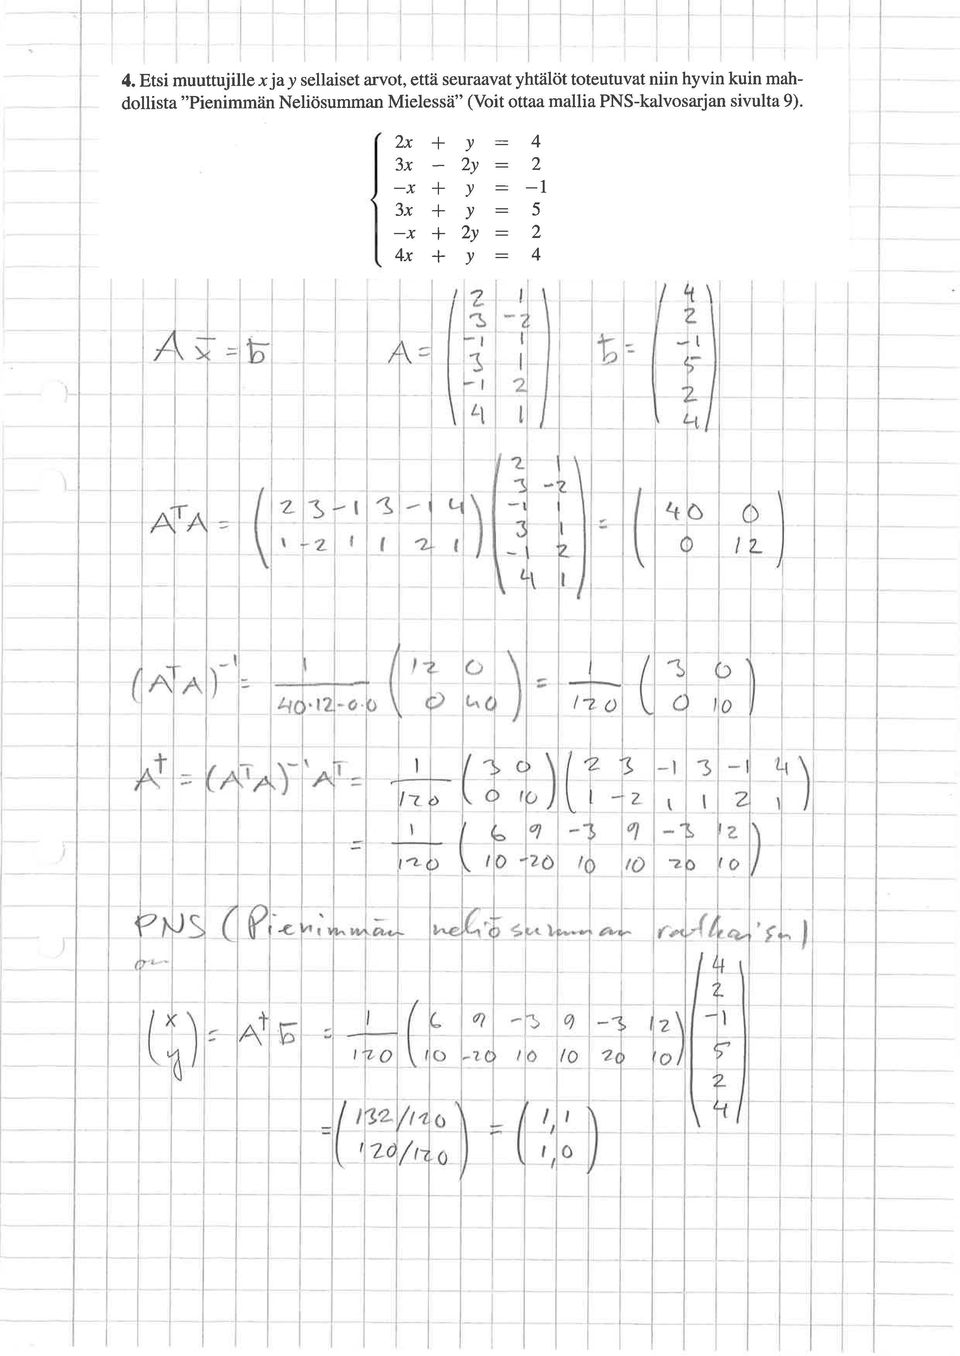 4. Etsi muuttujille x ja y sellaiset arvot, että seuraavat yhtälöt toteutuvat niin hyvin kuin mah-
dollista ”Pienimmän Neliösumman Mielessä” (Voit ottaa mallia PNS-kalvosarjan sivulta 9).
2x + y = 4
3x − 2y = 2
−x + y = −1
3x + y = 5
−x + 2y = 2
4x + y = 4
A x̄ = b̄   A = ( 2 1 ; 3 −2 ; −1 1 ; 3 1 ; −1 2 ; 4 1 )   b̄ = ( 4 ; 2 ; −1 ; 5 ; 2 ; 4 )
AᵀA = ( 2 3 −1 3 −1 4 ; 1 −2 1 1 2 1 ) ( 2 1 ; 3 −2 ; −1 1 ; 3 1 ; −1 2 ; 4 1 ) = ( 40 0 ; 0 12 )
(AᵀA)⁻¹ = 1/(40·12−0·0) ( 12 0 ; 0 40 ) = 1/120 ( 3 0 ; 0 10 )
A† = (AᵀA)⁻¹Aᵀ = 1/120 ( 3 0 ; 0 10 ) ( 2 3 −1 3 −1 4 ; 1 −2 1 1 2 1 )
= 1/120 ( 6 9 −3 9 −3 12 ; 10 −20 10 10 20 10 )
PNS (Pienimmän neliösumman ratkaisu)
on
( x ; y ) = A† b̄ = 1/120 ( 6 9 −3 9 −3 12 ; 10 −20 10 10 20 10 ) ( 4 ; 2 ; −1 ; 5 ; 2 ; 4 )
= ( 132/120 ; 120/120 ) = ( 1,1 ; 1,0 )